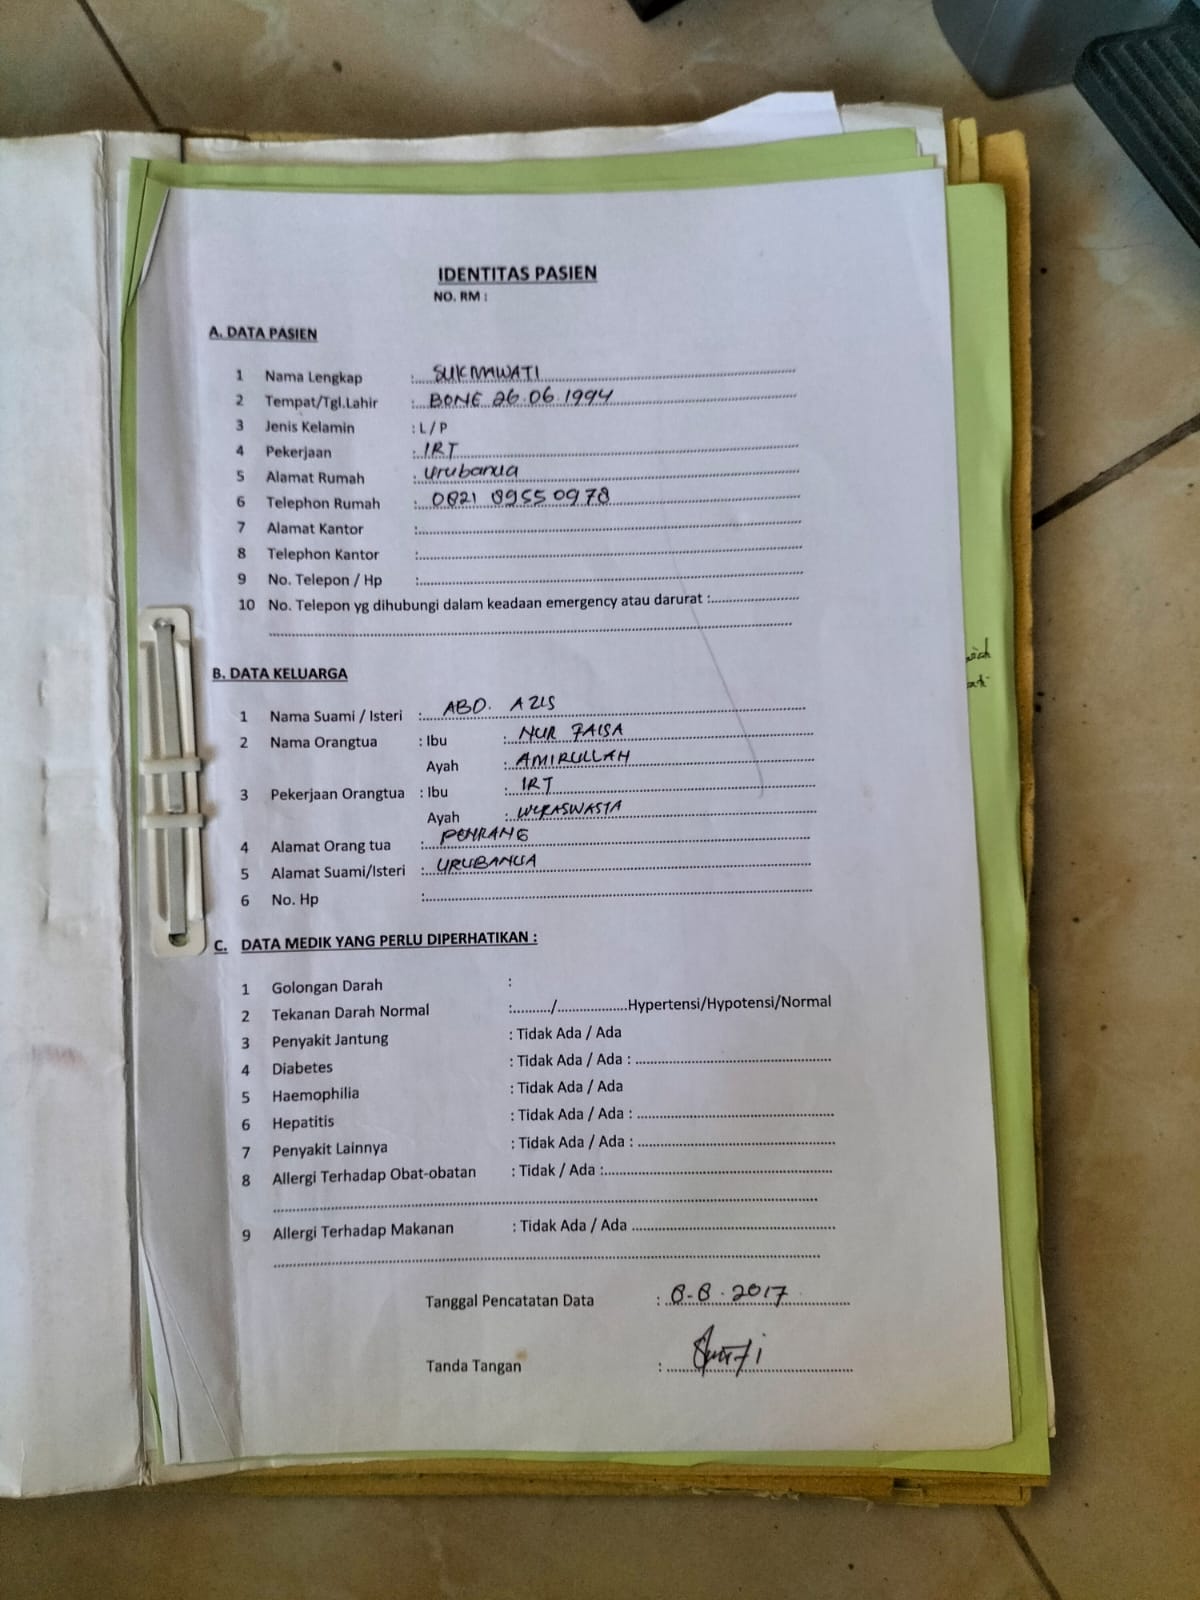 IDENTITAS PASIEN
NO. RM :
A. DATA PASIEN
1 Nama Lengkap : SUKMAWATI
2 Tempat/Tgl.Lahir : BONE 26.06.1994
3 Jenis Kelamin : L / P
4 Pekerjaan : IRT
5 Alamat Rumah : Urubanua
6 Telephon Rumah : 0821 8955 0978
7 Alamat Kantor :
8 Telephon Kantor :
9 No. Telepon / Hp :
10 No. Telepon yg dihubungi dalam keadaan emergency atau darurat :
B. DATA KELUARGA
1 Nama Suami / Isteri : ABD. AZIS
2 Nama Orangtua : Ibu : NUR FAISA
Ayah : AMIRULLAH
3 Pekerjaan Orangtua : Ibu : IRT
Ayah :
4 Alamat Orang tua :
5 Alamat Suami/Isteri : URUBANUA
6 No. Hp :
C. DATA MEDIK YANG PERLU DIPERHATIKAN :
1 Golongan Darah :
2 Tekanan Darah Normal :........../....................Hypertensi/Hypotensi/Normal
3 Penyakit Jantung : Tidak Ada / Ada
4 Diabetes : Tidak Ada / Ada :
5 Haemophilia : Tidak Ada / Ada
6 Hepatitis : Tidak Ada / Ada :
7 Penyakit Lainnya : Tidak Ada / Ada :
8 Allergi Terhadap Obat-obatan : Tidak / Ada :
9 Allergi Terhadap Makanan : Tidak Ada / Ada
Tanggal Pencatatan Data : 8-8-2017
Tanda Tangan :